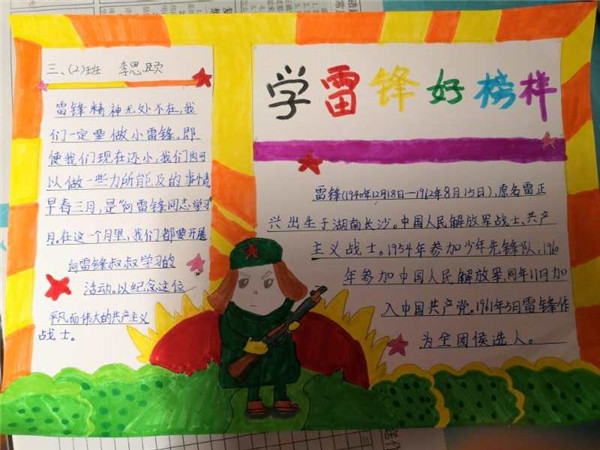 三、(2)班 李思颐
雷锋精神无处不在,我
们一定要做小雷锋,即
便我们现在还小,我们也可
以做一些力所能及的事情
早春三月,是"向雷锋同志学习"
月,在这个月里,我们都要开展
向雷锋叔叔学习的
活动。以纪念这位
平凡而伟大的共产主义
战士。
学雷锋好榜样
雷锋(1940年12月18日—1962年8月15日),原名雷正
兴出生于湖南长沙。中国人民解放军战士、共产
主义战士。1954年参加少年先锋队,1960
年参加中国人民解放军,同年11月加
入中国共产党。1961年5月雷锋作
为全团候选人。